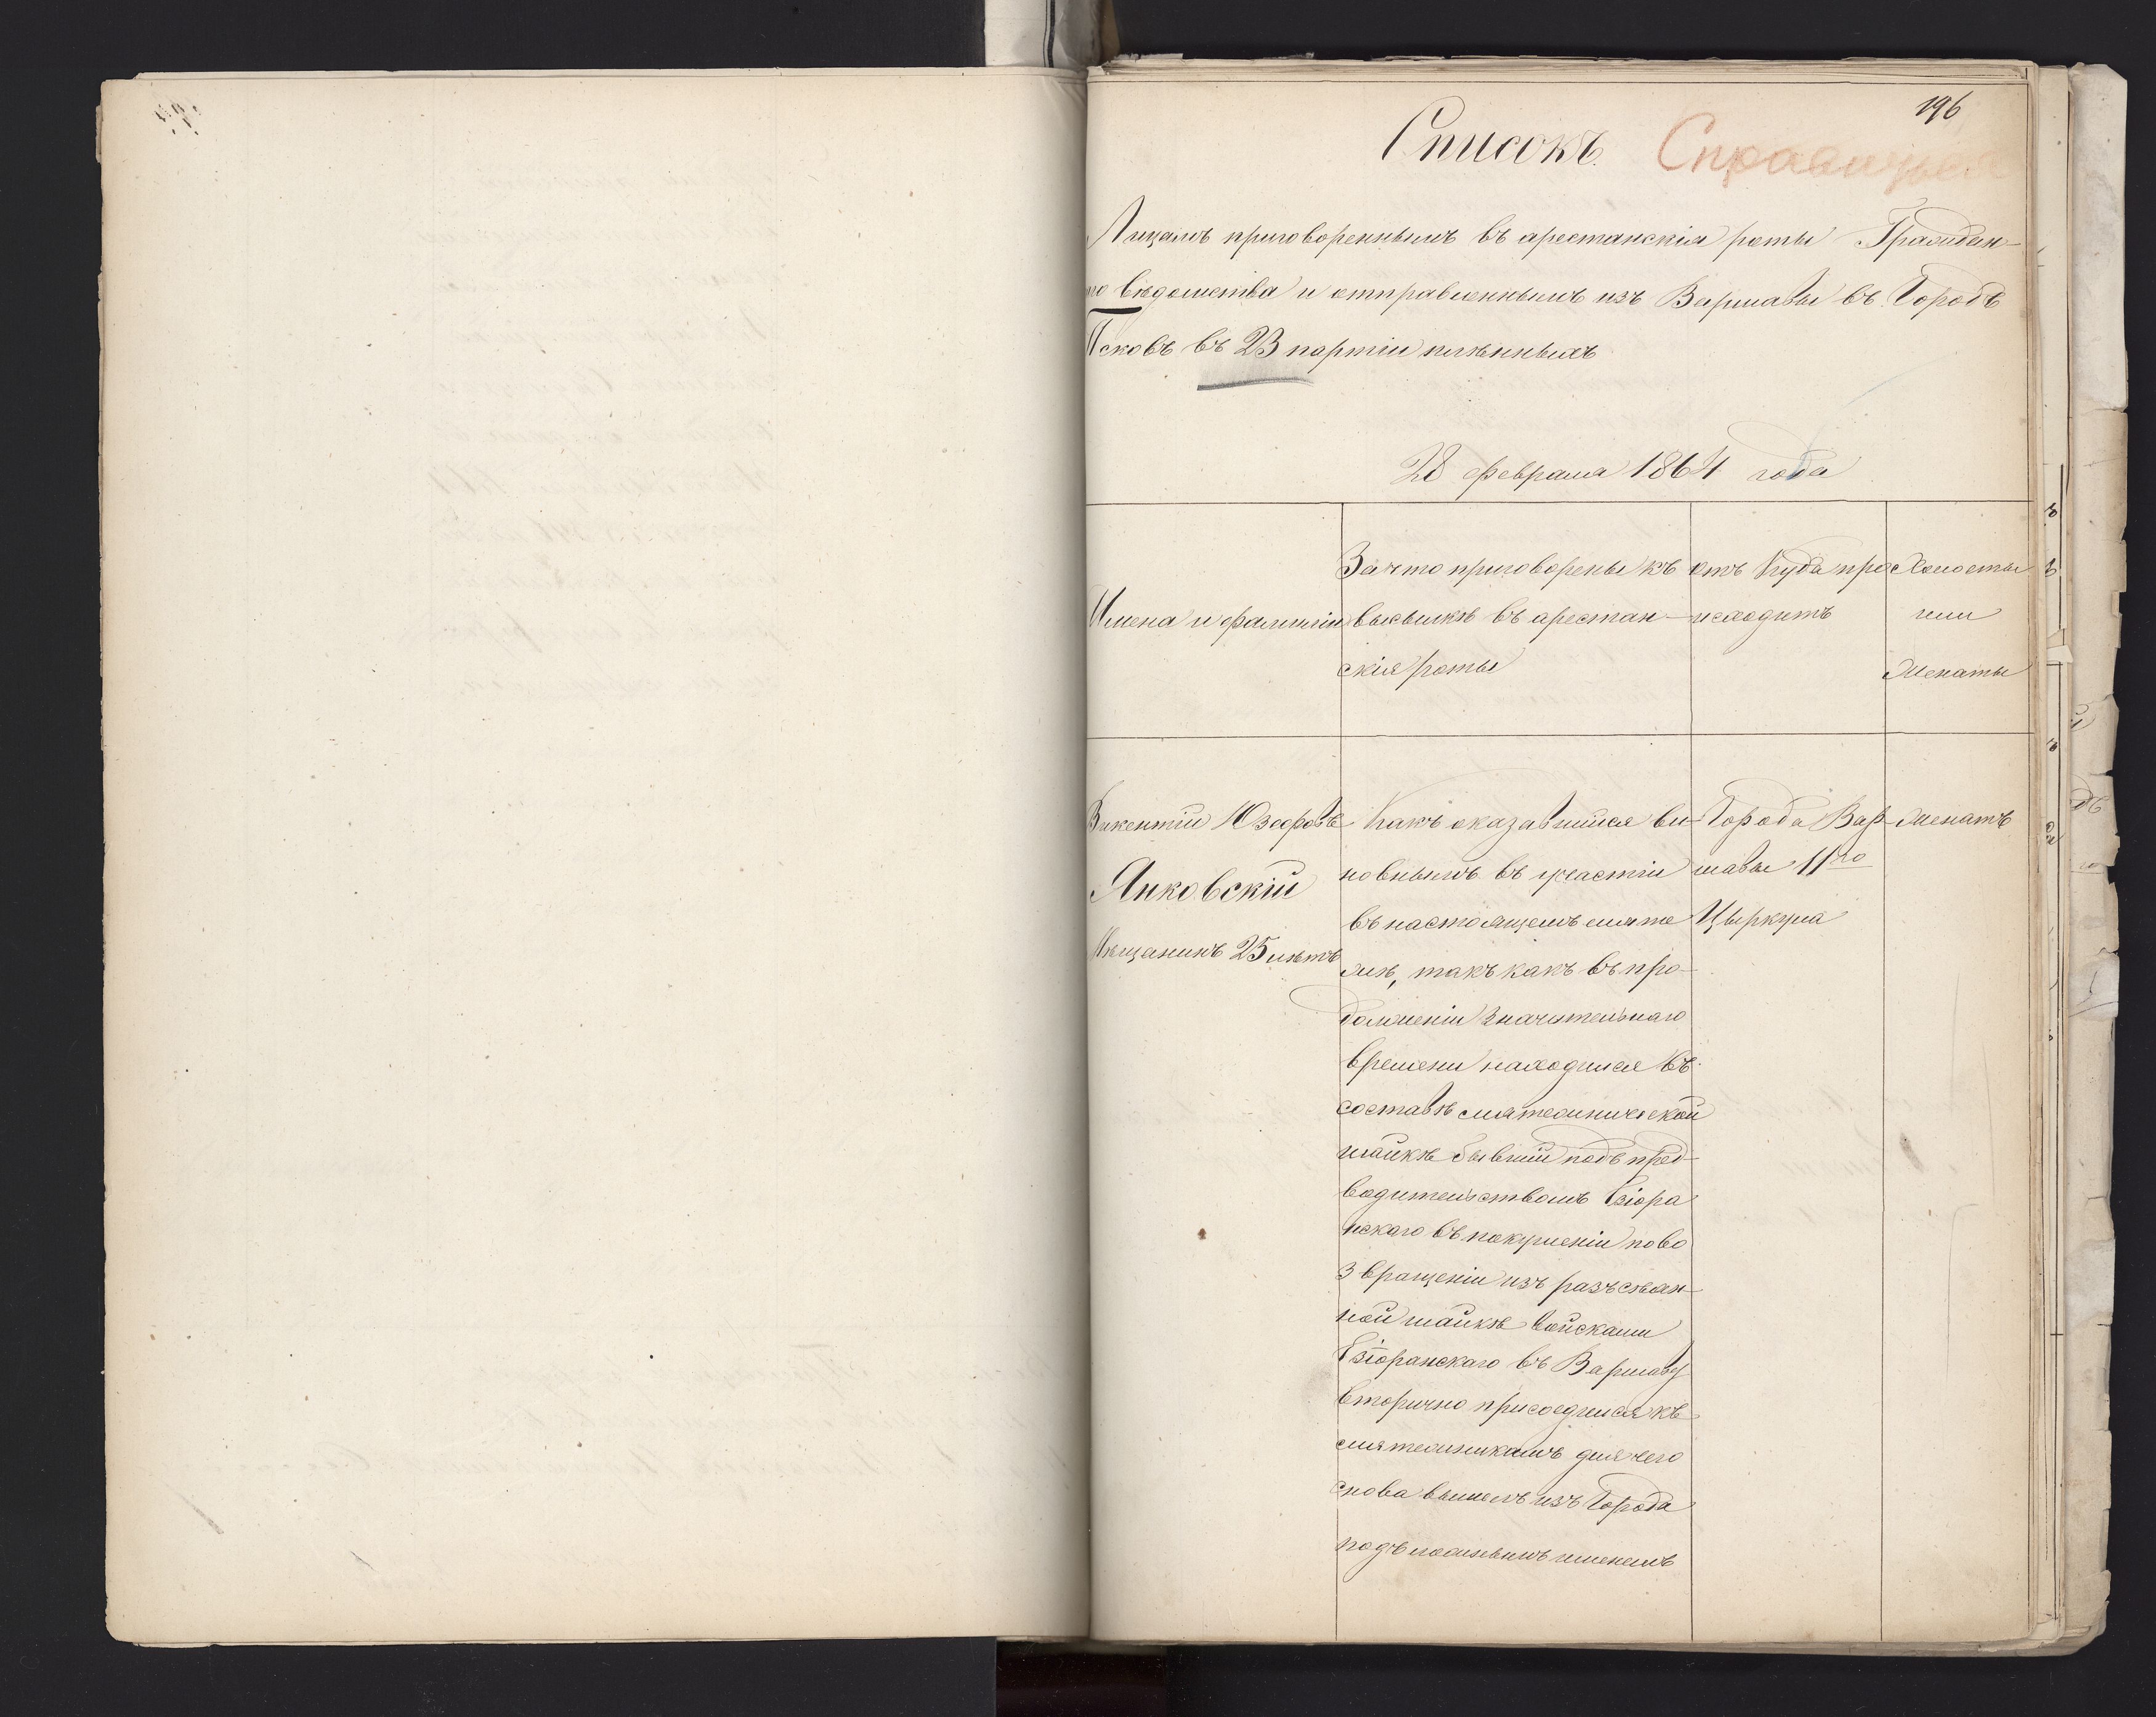 196
Списокъ.
Лицамъ приговореннымъ въ арестанскія роты Граждан-
го вѣдомства и отправленнымъ изъ Варшавы въ Городъ
Псковъ въ 23 партіи плѣнныхъ
28 февраля 1864 года
Имена и фамиліи
За что приговорены къ
высылкѣ въ арестан-
скія роты
отъ куда про
исходитъ
Холосты
или
Женаты
Викентій Юзефовъ
Янковскій
Мѣщанинъ 25 лѣтъ
Какъ оказавшійся ви-
новнымъ въ участіи
въ настоящемъ мяте
жѣ, такъ какъ въ про-
долженіи значительнаго
времени находился въ
составѣ мятежнической
шайкѣ бывшій подъ пред-
водительствомъ
нскаго въ покушеніи по во
звращеніи изъ разъсѣян-
ной шайкѣ войсками
въ Варшаву
вторично присоедился къ
мятежникамъ для чего
снова вышелъ изъ Города
подъ ложнымъ именемъ
Города Вар-
шавы 11го
Цыркула
Женатъ